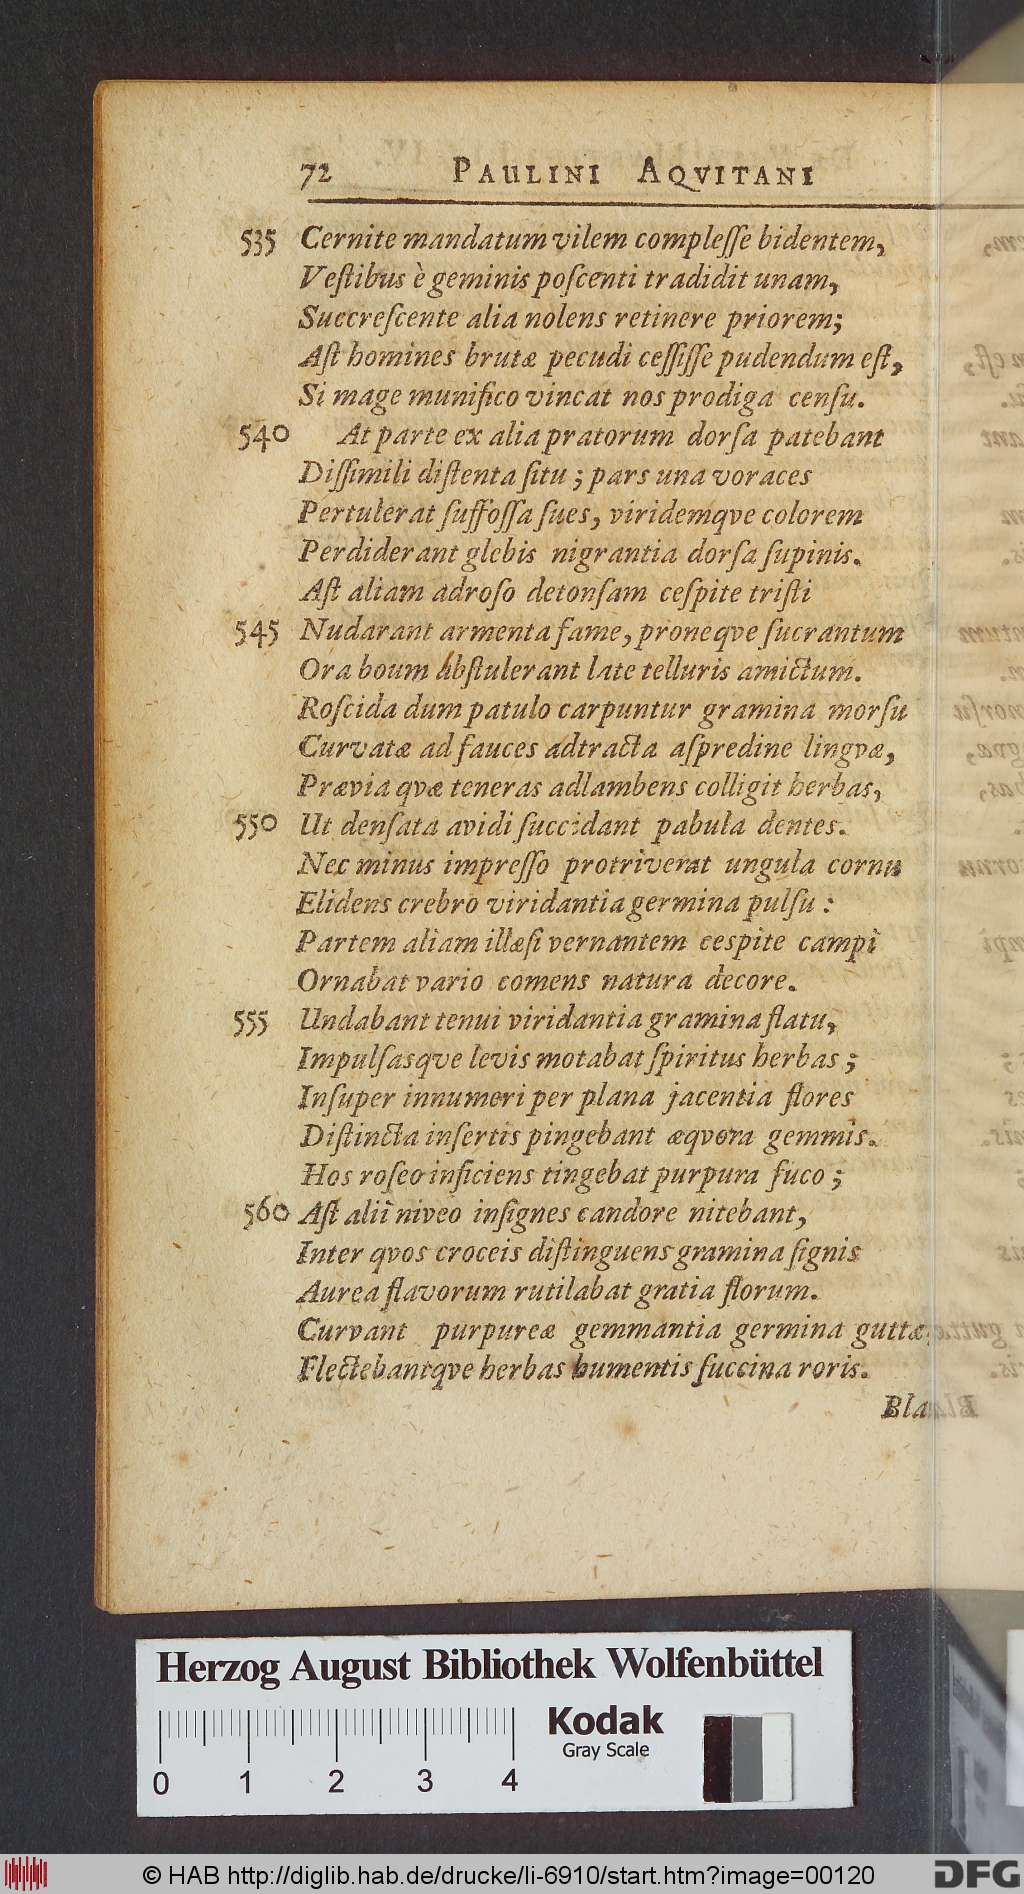 72 PAULINI AQVITANI
535 Cernite mandatum vilem complesſe bidentem,
Veſtibus è geminis poſcenti tradidit unam,
Succreſcente alia nolens retinere priorem;
Aſt homines brutæ pecudi cesſiſſe pudendum eſt,
Si mage munifico vincat nos prodiga cenſu.
540 At parte ex alia pratorum dorſa patebant
Diſſimili diſtenta ſitu; pars una voraces
Pertulerat ſuffoſſa ſues, viridemqve colorem
Perdiderant glebis nigrantia dorſa ſupinis.
Aſt aliam adroſo detonſam ceſpite triſti
545 Nudarant armenta fame, proneqve ſucrantum
Ora boum abſtulerant late telluris amictum.
Roſcida dum patulo carpuntur gramina morſu
Curvatæ ad fauces adtracta aſpredine lingvæ,
Prævia qvæ teneras adlambens colligit herbas,
550 Ut denſata avidi ſuccidant pabula dentes.
Nec minus impreſſo protriverat ungula cornu
Elidens crebro viridantia germina pulſu:
Partem aliam illæſi vernantem ceſpite campi
Ornabat vario comens natura decore.
555 Undabant tenui viridantia gramina flatu,
Impulſasqve levis motabat ſpiritus herbas;
Inſuper innumeri per plana jacentia flores
Diſtincta inſertis pingebant æqvora gemmis.
Hos roſeo inficiens tingebat purpura fuco;
560 Aſt alii niveo inſignes candore nitebant,
Inter qvos croceis diſtinguens gramina ſignis
Aurea flavorum rutilabat gratia florum.
Curvant purpureæ gemmantia germina guttæ,
Flectebantqve herbas humentis ſuccina roris.
Bla
Herzog August Bibliothek Wolfenbüttel
Kodak
Gray Scale
0 1 2 3 4
© HAB http://diglib.hab.de/drucke/li-6910/start.htm?image=00120
DFG